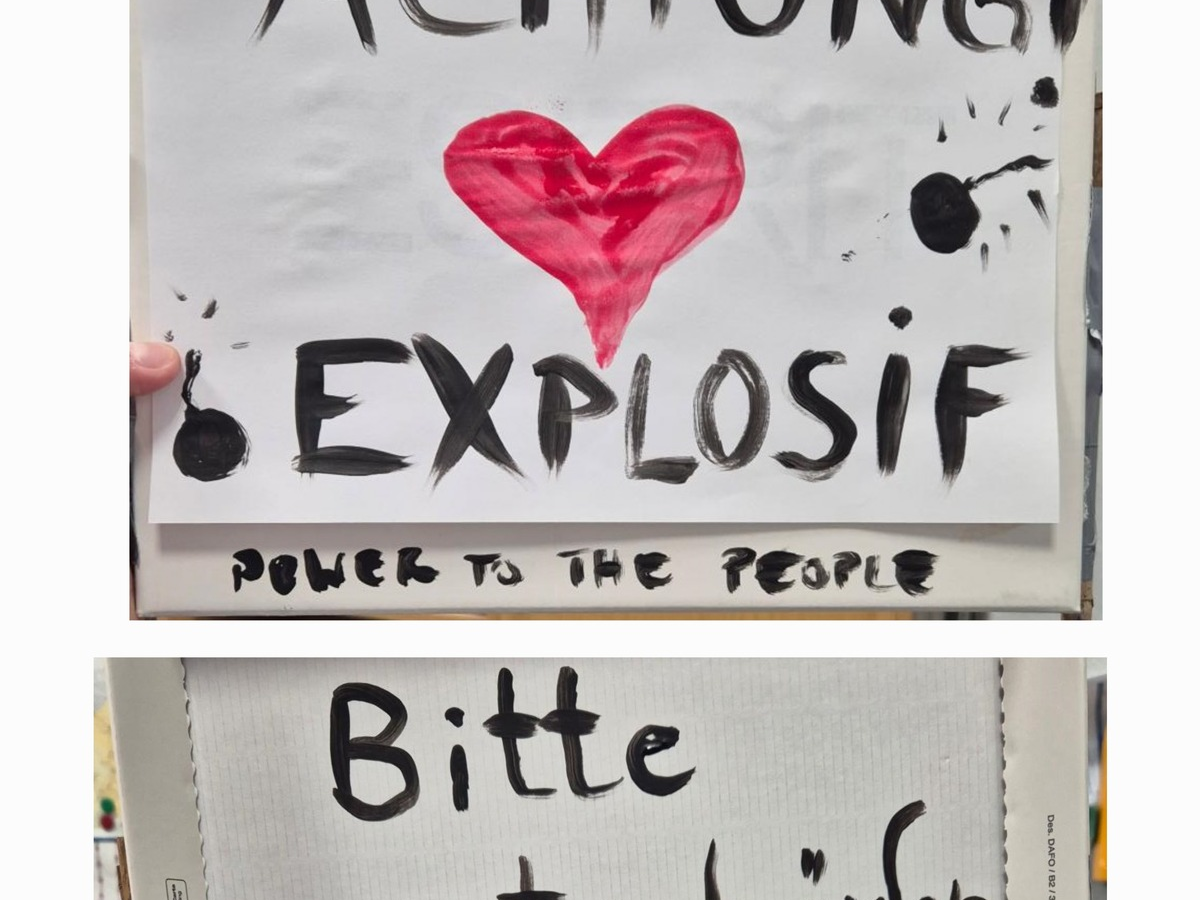 ACHTUNG!
EXPLOSiF
POWER TO THE PEOPLE
Bitte
Des. DAFO / B2 /